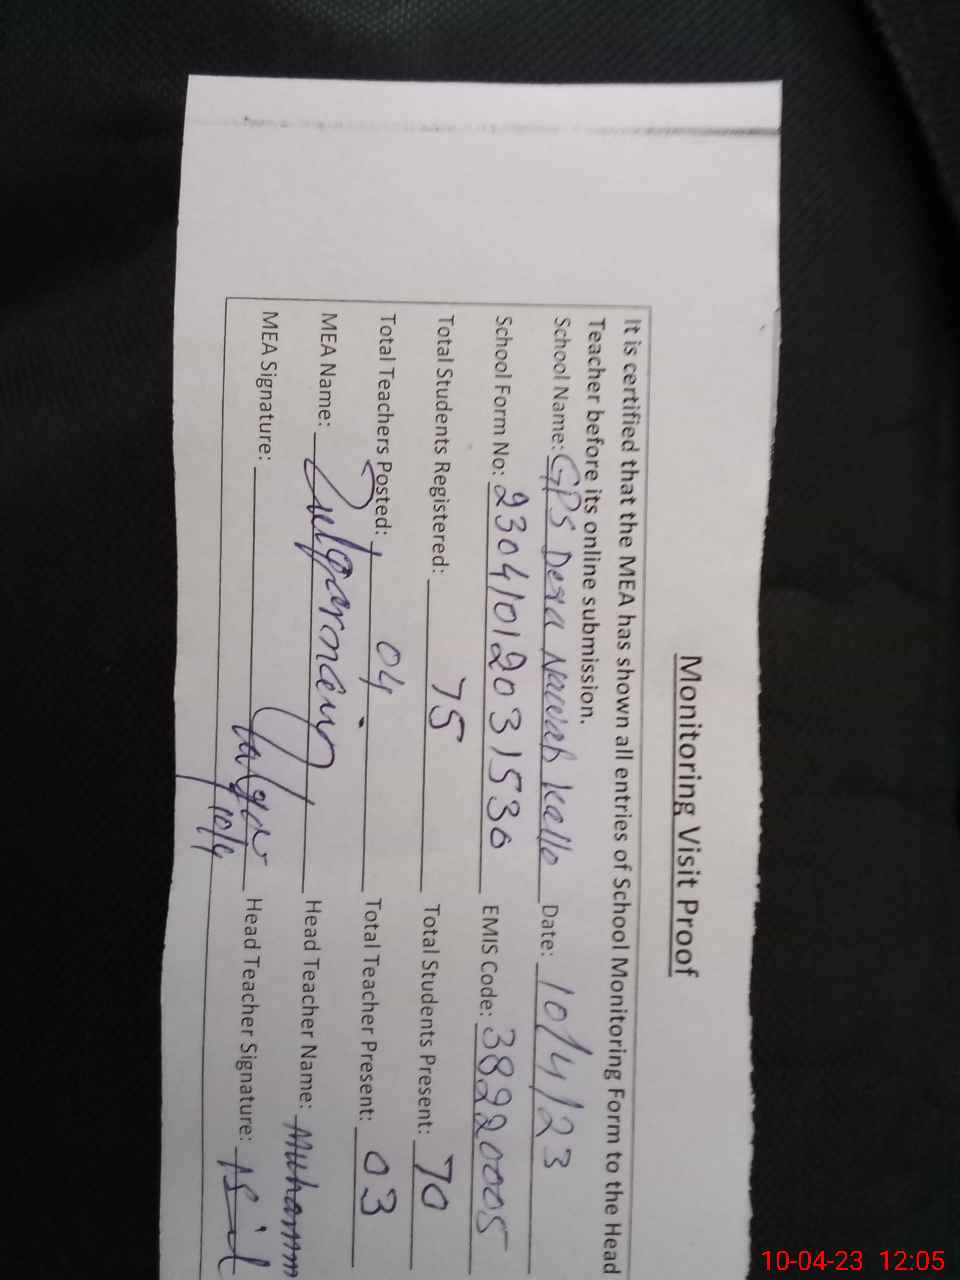 Monitoring Visit Proof
It is certified that the MEA has shown all entries of School Monitoring Form to the Head
Teacher before its online submission.
School Name: GPS Dera Nawab Kallo Date: 10/4/23
School Form No: 2304101203153 EMIS Code: 38220005
Total Students Registered: 75 Total Students Present: 70
Total Teachers Posted: 04 Total Teacher Present: 03
MEA Name: Head Teacher Name: Muhamm
MEA Signature: 10/4 Head Teacher Signature:
10-04-23 12:05